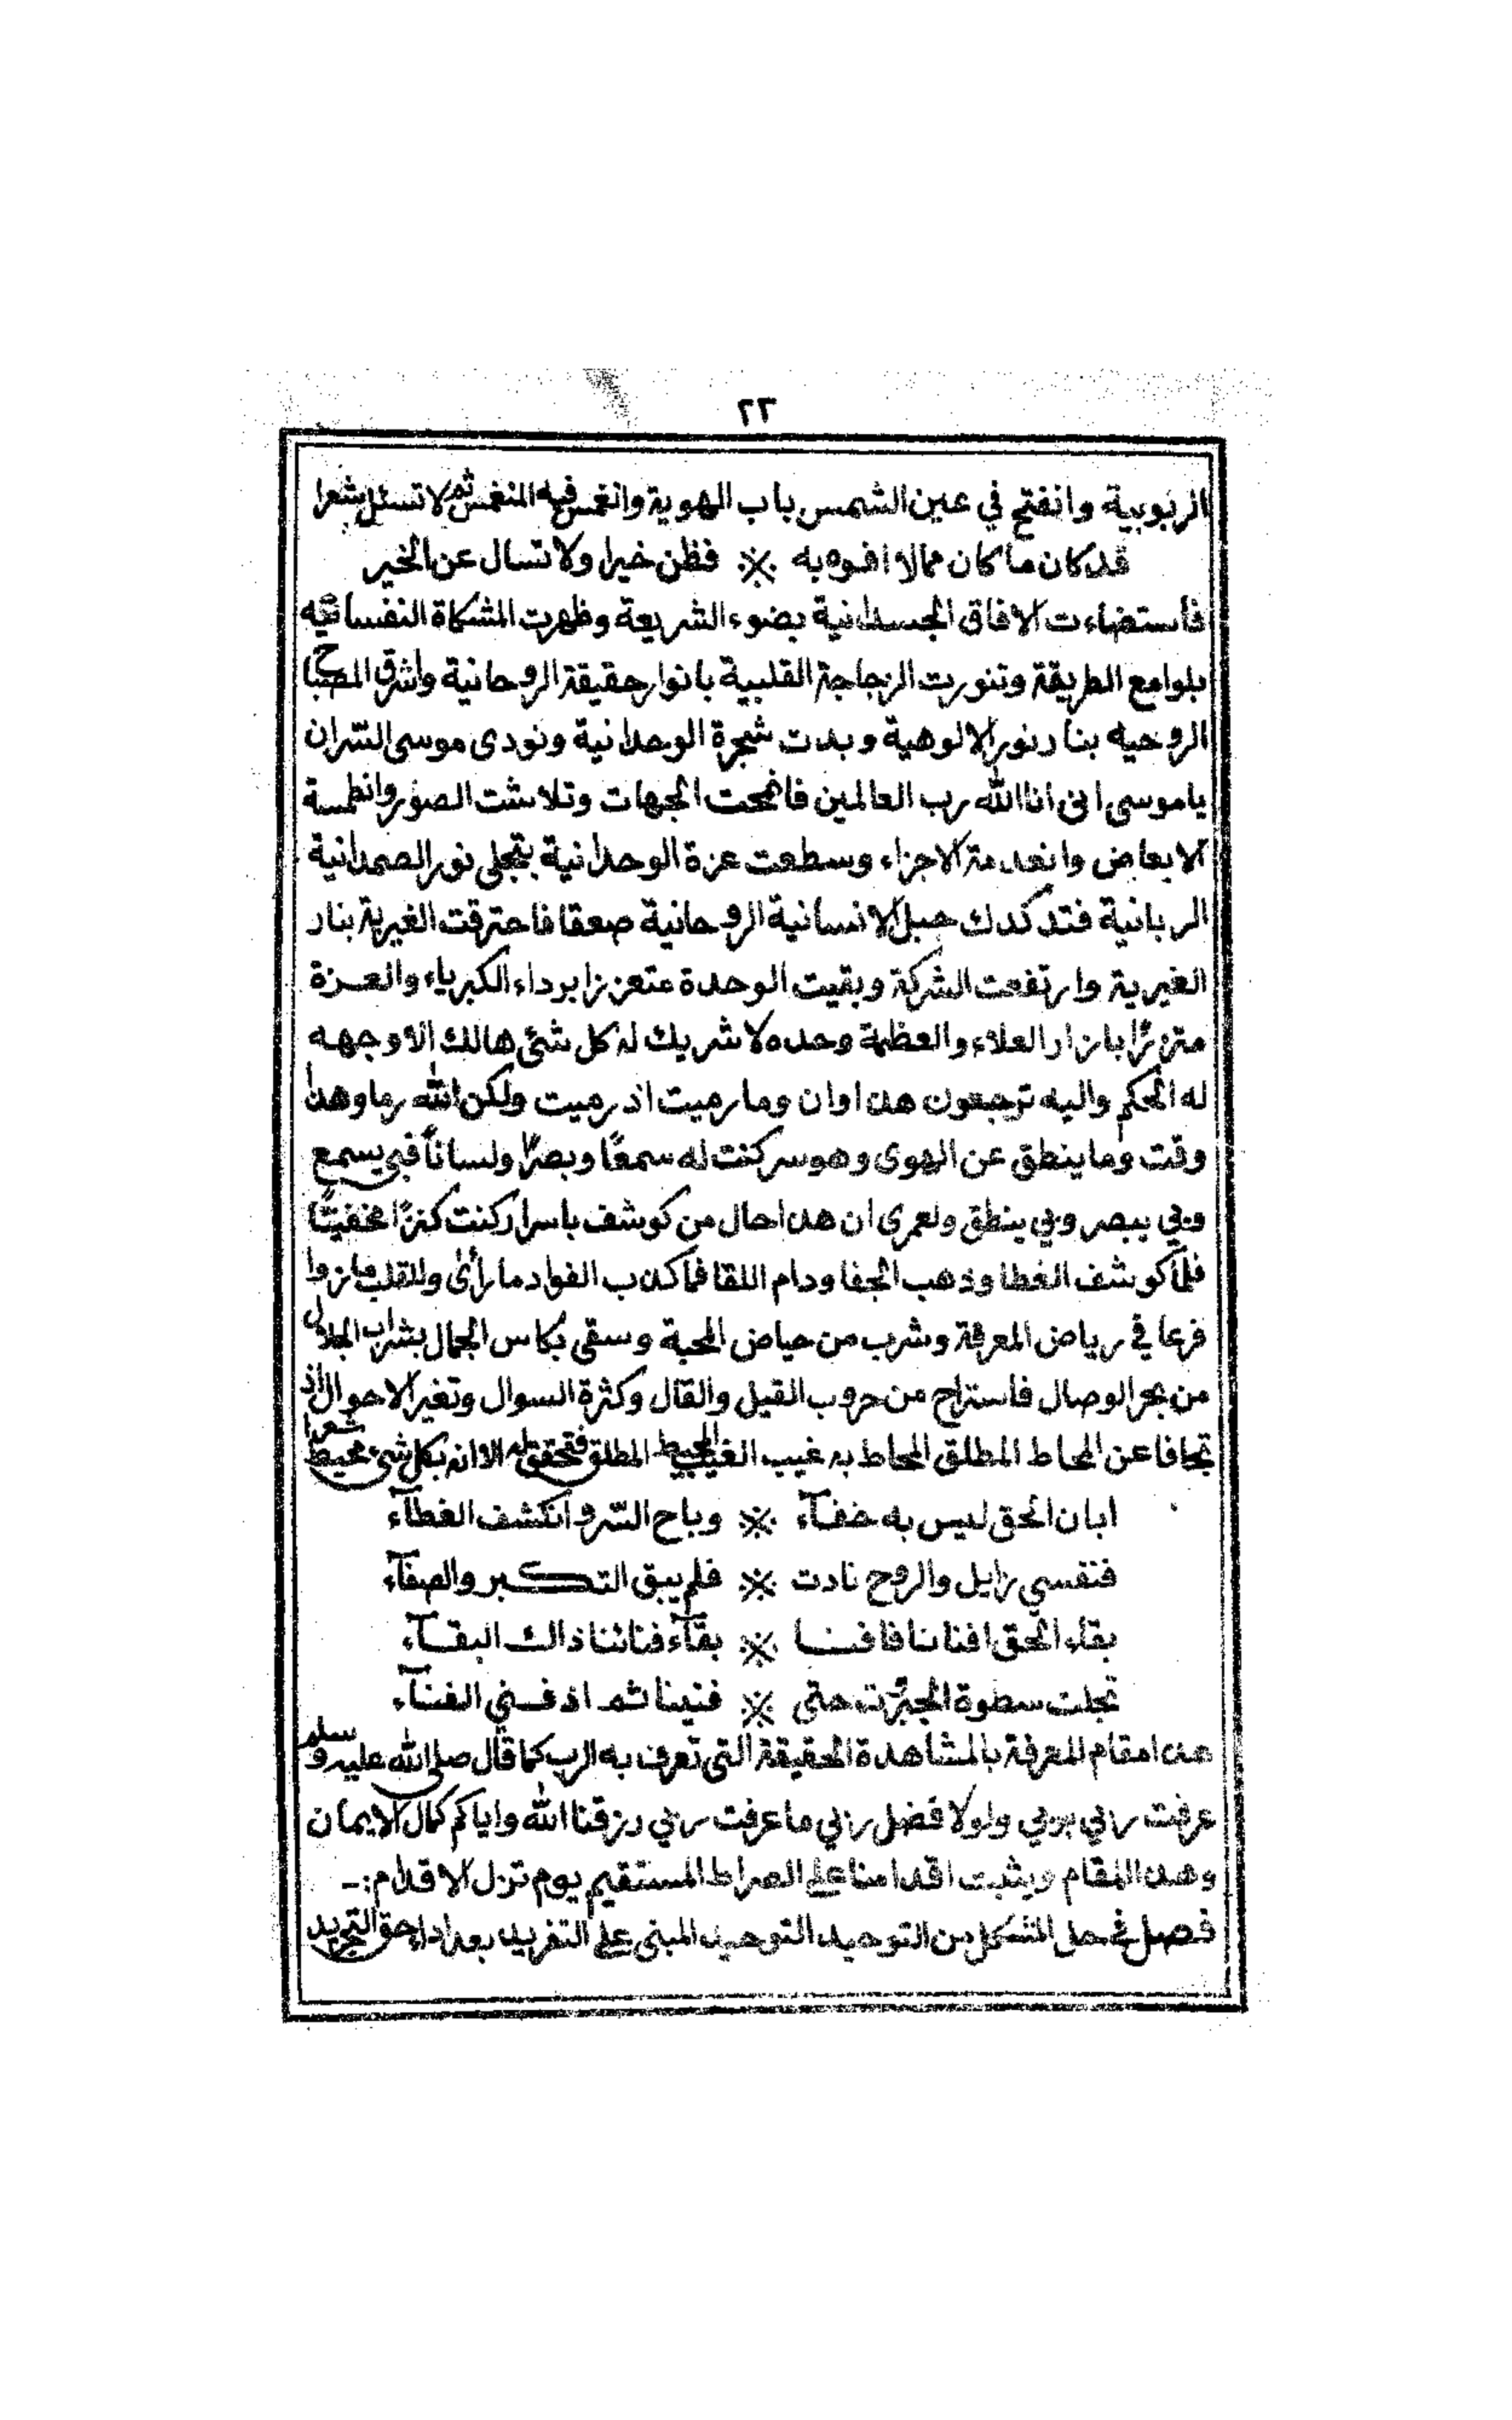 ٢٢
الربوبية وانفتح في عين الشمس باب الهوية وانغمس فيه المنغمس ثم لا تسئل شعرا
قد كان ما كان ممالا افوه به ※ فظن خيرا ولا تسال عن الخير
فأستضاءت الافاق الجسدانية بضوء الشريعة وظهرت المشكاة النفسانيه
بلوامع الطريقة وتنورت الزجاجة القلبية بانوار حقيقة الروحانية واشرق المصباح
الروحيه بنار نور الالوهية وبدت شجرة الوحدانية ونودى موسى السّران
ياموسى انى اناالله رب العالمين فانمحت الجهات وتلاشت الصور وانطمسة
الابعاض وانعدمة الاجزاء وسطعت عزة الوحدانية بتجلى نور الصمدانية
الربانية فتدكدك جبل الانسانية الروحانية صعقا فاحترقت الغيرية بنار
الغيرية وارتفعت الشركة وبقيت الوحدة متعززا برداء الكبرياء والعزة
متزرًا بازار العلاء والعظمة وحده لا شريك له كل شئ هالك الا وجهه
له الحكم واليه ترجعون هذا اوان وما رميت اذ رميت ولكن الله رما وهذا
وقت وما ينطق عن الهوى وهو سر كنت له سمعًا وبصرًا ولسانًا فبى يسمع
وبي يبصر وبي ينطق ولعمرى ان هذا حال من كوشف باسرار كنت كنزًا مخفيًا
فلما كوشف الغطا وذهب الجفا ودام اللقا فما كذب الفواد ما رأى وللقلب ما زوا
فرعا في رياض المعرفة وشرب من حياض المحبة وسقى بكاس الجمال بشراب الجلال
من بحر الوصال فاستراح من حروب القيل والقال وكثرة السوال وتغير الاحوال اذ
تجافا عن المحاط المطلق المحاط به غيب الغيب المحيط المطلق فتحقق له الا انه بكل شئ محيط شعرا
ابان الحق ليس به خفآء ※ وباح السّر وانكشف الغطآء
فنفسي زايل والروح نادت ※ فلم يبق التكبر والصفآء
بقاء الحق افنانا فافنا ※ بقآء فنائنا ذالك البقآء
تجلت سطوة الجبّرت حتى ※ فنينا ثم اذ فني الفنآء
هذا مقام المعرفة بالمشاهدة الحقيقة التى تعرف به الرب كما قال صلى الله عليه وسلم
عرفت ربي بربي ولولا فضل ربي ما عرفت ربي رزقنا الله واياكم كمال الايمان
وهذا المقام ويثبت اقدامنا على الصراط المستقيم يوم تزل الاقدام :-
فصل في حل المشكل من التوحيد التوحيد المبنى على التفريد بعد اداء حق التجريد